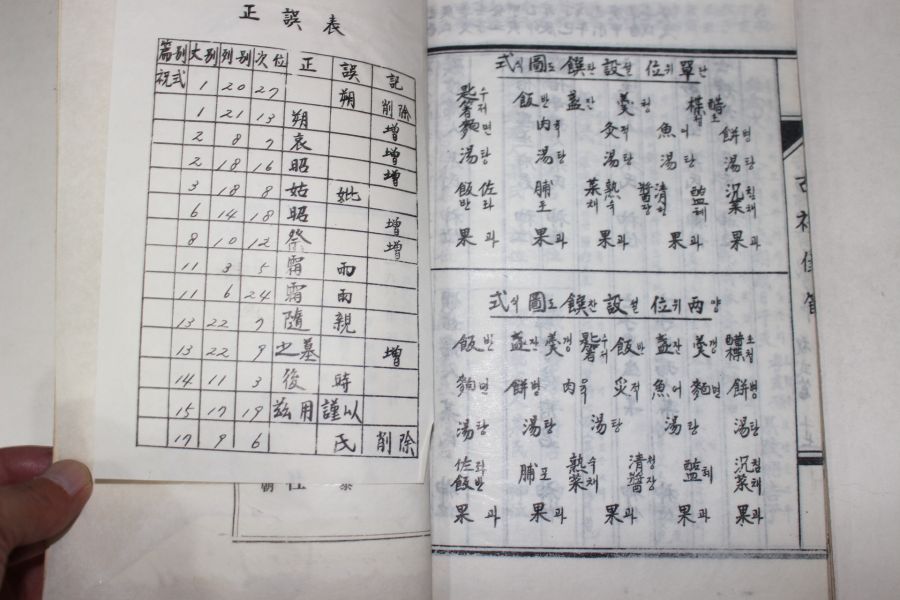 正誤表
篇別 丈別 列別 次位 正 誤 記
祝式 1 20 27 朔 削除
1 21 13 朔 增
2 8 7 哀 增
2 18 16 昭 增
3 18 8 姑 妣
6 14 18 昭 增
8 10 12 祭 增
11 3 5 霜 雨
11 6 24 霜 雨
13 22 7 隨 親
13 22 9 之墓 增
14 11 3 後 時
15 17 19 玆用 謹以
17 9 6 氏 削除
式식 圖도 饌찬 設설 位위 單단
匙수箸저 飯반 盞잔 羹갱 楪접醋초
麵면 肉육 炙적 魚어 餠병
湯탕 湯탕 湯탕 湯탕 湯탕
飯반佐좌 脯포 菜채熟숙 醬장淸청 醢해 沉침菜채
果과 果과 果과 果과 果과
式식 圖도 饌찬 設설 位위 兩양
飯반 盞잔 羹갱 匙수箸저 飯반 盞잔 羹갱 醋초楪접
麵면 餠병 肉육 炙적 魚어 麵면 餠병
湯탕 湯탕 湯탕 湯탕 湯탕
佐좌飯반 脯포 熟숙菜채 淸청醬장 醢해 沉침菜채
果과 果과 果과 果과 果과